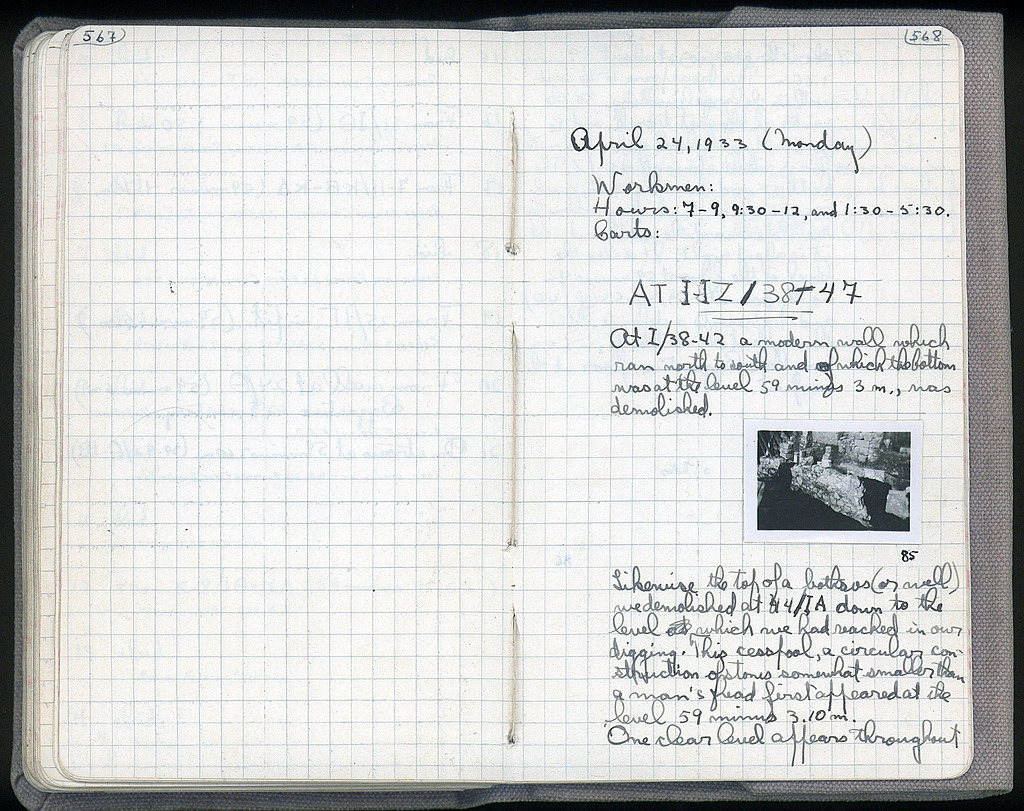 567
568
April 24, 1933 (Monday)
Workmen:
Hours: 7-9, 9:30-12, and 1:30-5:30.
Carts:
AT HZ/38-47
At I/38-42 a modern wall which
ran north to south and of which the bottom
was at the level 59 minus 3 m., was
demolished.
85
Likewise the top of a bothros (or well)
we demolished at 44/IA down to the
level which we had reached in our
digging. This cesspool, a circular con-
struction of stones somewhat smaller than
a man's head first appeared at the
level 59 minus 3.10 m.
One clear level appears throughout